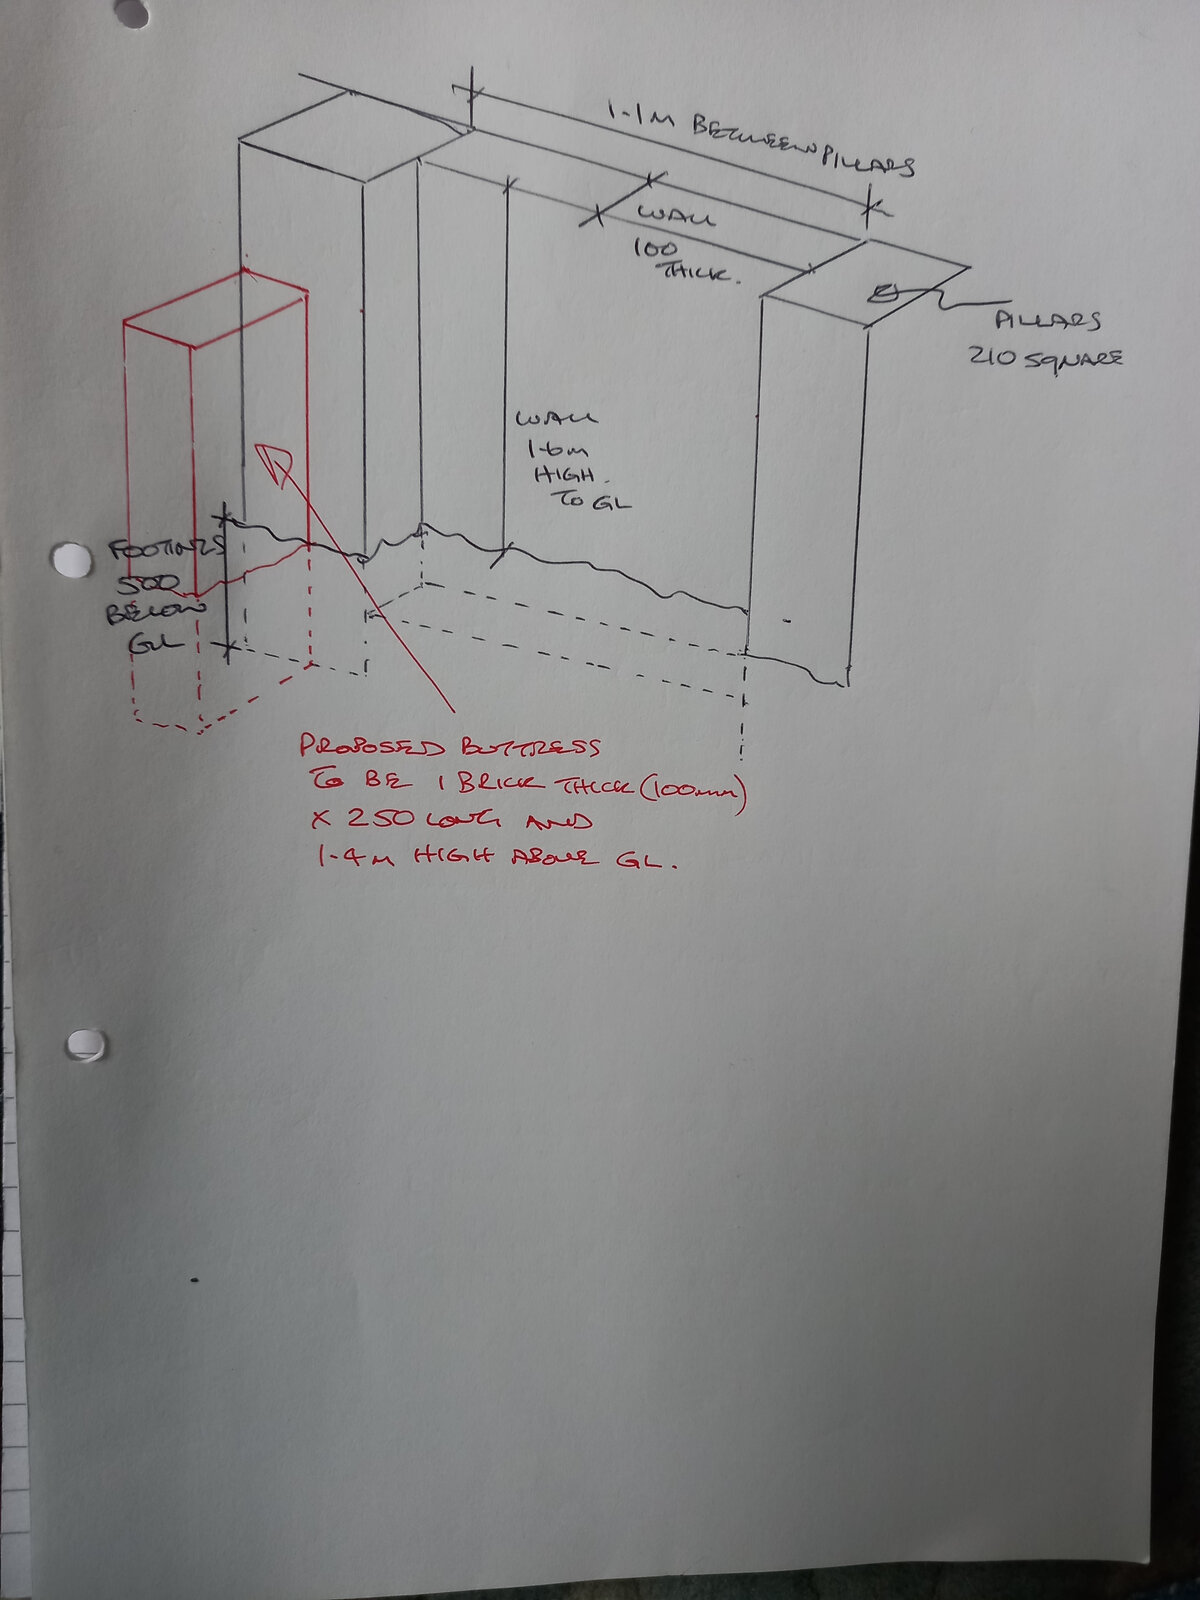 1.1M BETWEEN PILLARS
WALL
100
THICK.
PILLARS
210 SQUARE
WALL
1.6m
HIGH.
TO GL
FOOTINGS
500
BELOW
GL
PROPOSED BUTTRESS
TO BE 1 BRICK THICK (100mm)
x 250 LONG AND
1.4m HIGH ABOVE GL.